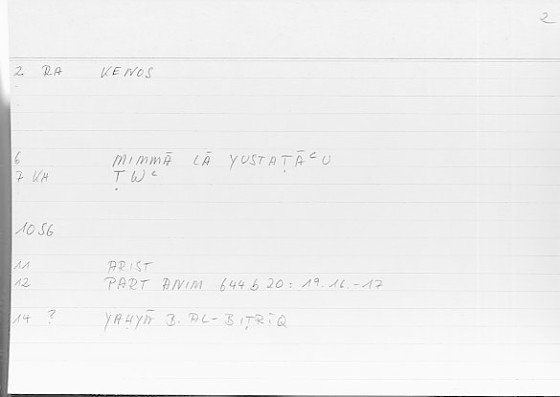 2
2 RA KENOS
6 MIMMĀ LĀ YUSTAṬĀᶜU
7 KH ṬWᶜ
10 S6
11 ARIST
12 PART ANIM 644 b 20 : 19.16.-17
14 ? YAḤYĀ B. AL-BIṬRĪQ